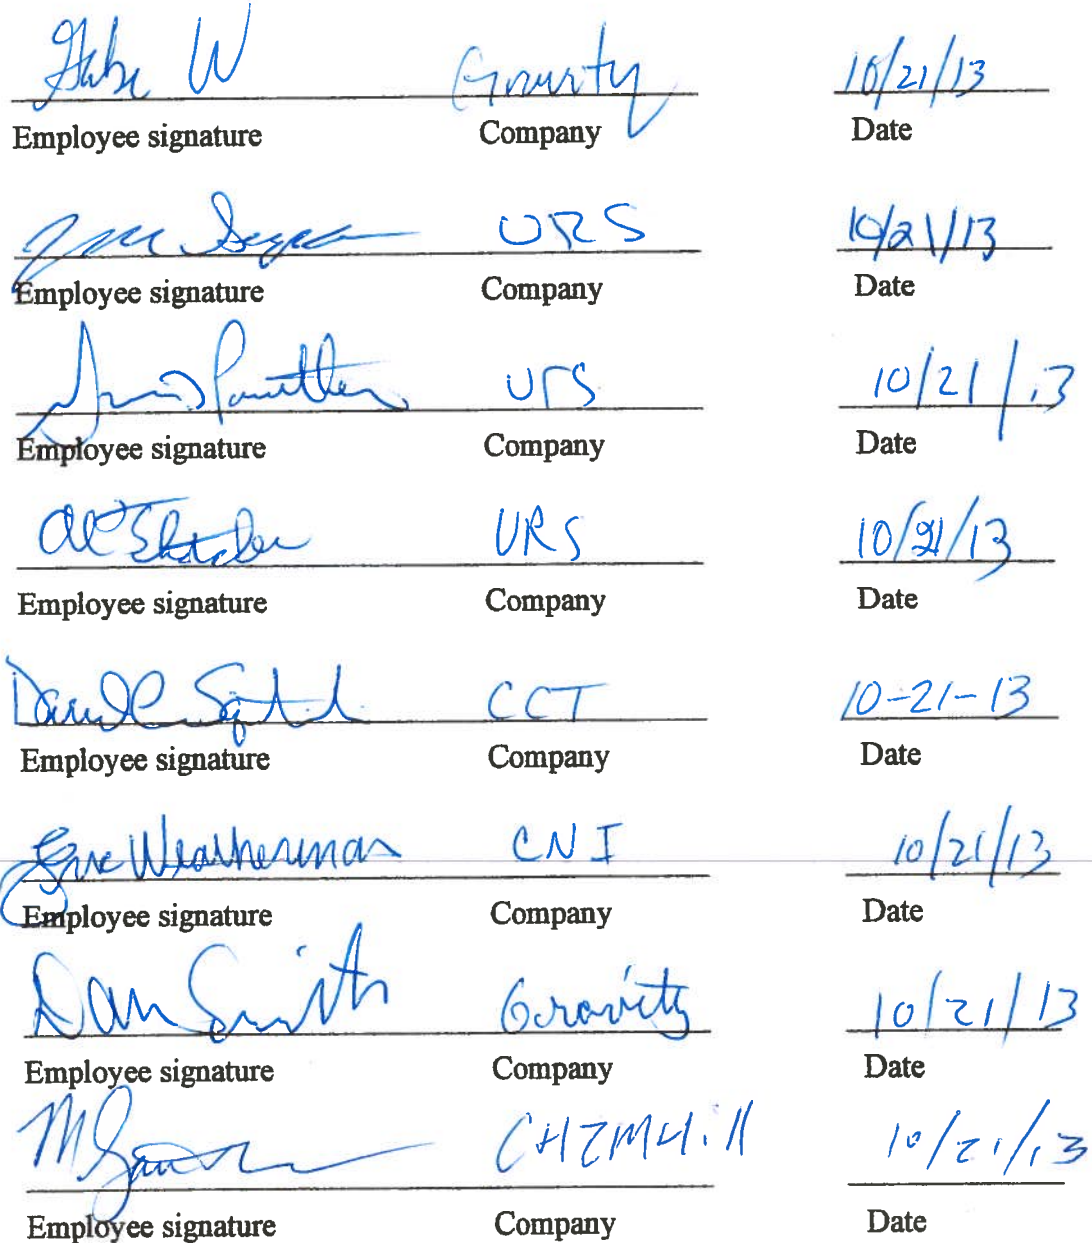 Gabe W Gravity 10/21/13
Employee signature Company Date
URS 10/21/13
Employee signature Company Date
URS 10/21/13
Employee signature Company Date
URS 10/21/13
Employee signature Company Date
CCT 10-21-13
Employee signature Company Date
Weatherman CNI 10/21/13
Employee signature Company Date
Dan Smith Gravity 10/21/13
Employee signature Company Date
CH2MHill 10/21/13
Employee signature Company Date